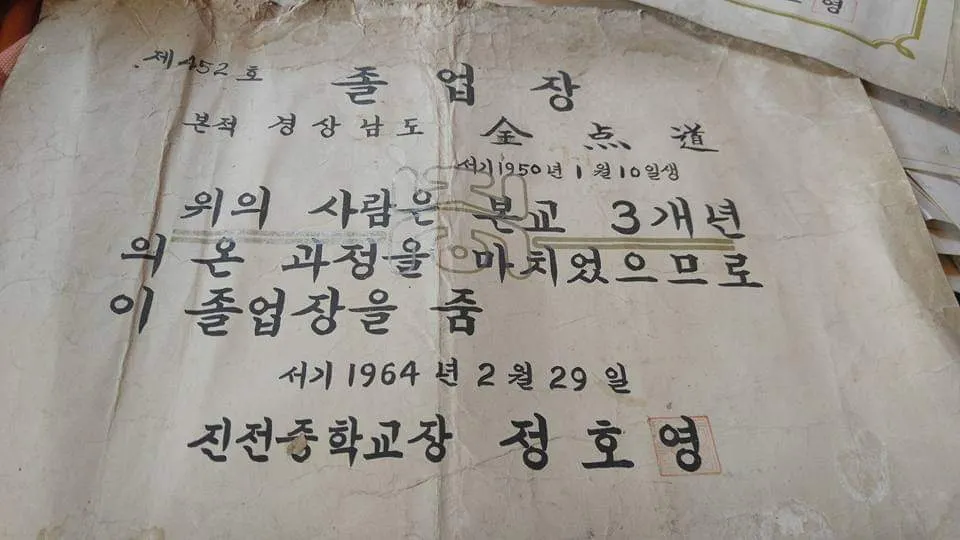 제452호
졸업장
본적 경상남도
金点道
서기1950년 1월 10일생
위의 사람은 본교 3개년
의 온 과정을 마치었으므로
이 졸업장을 줌
서기 1964년 2월 29일
진전중학교장 정호영
영